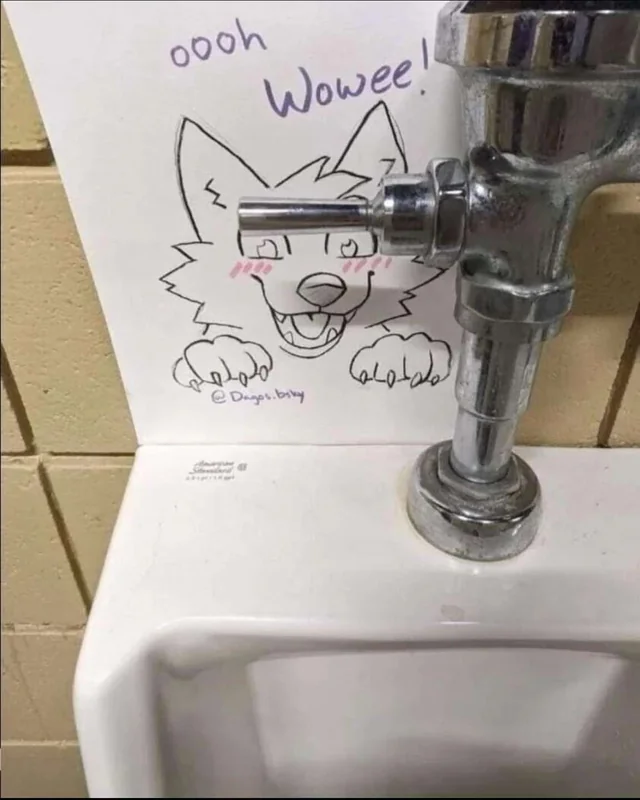 oooh
Wowee!
@Dagos.bsky
American
Standard